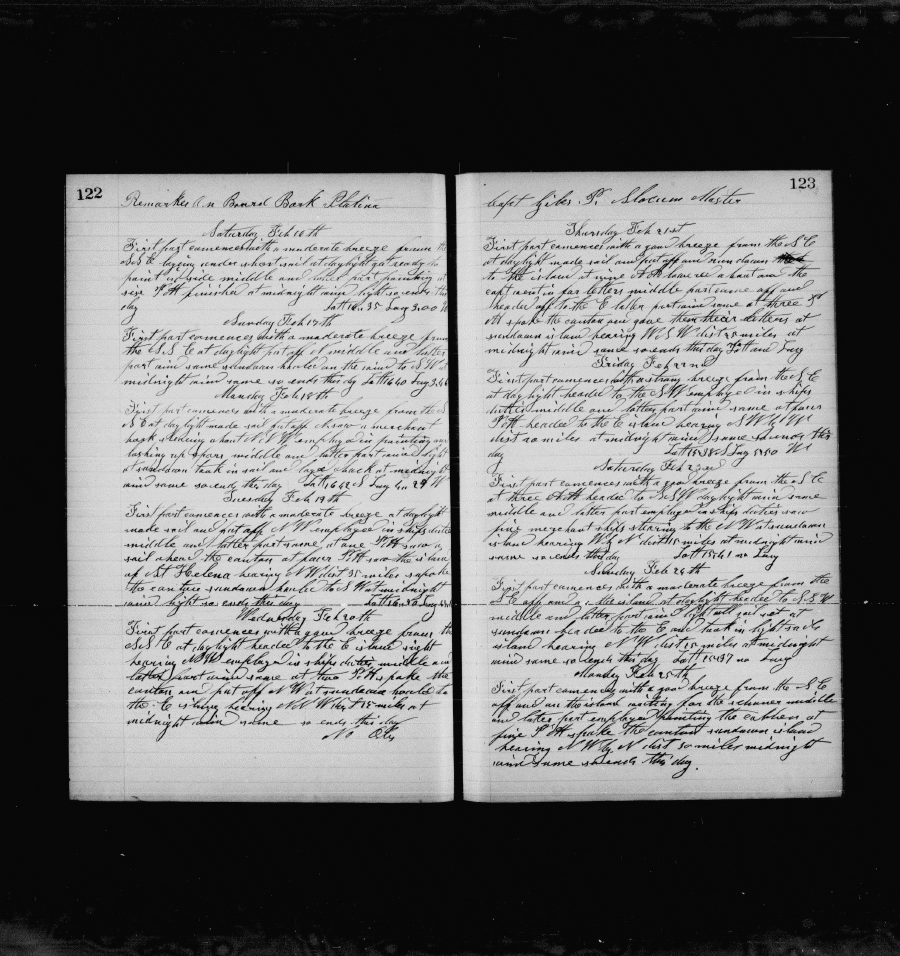 122
Remarkes On Board Bark Platina
Saturday Feb 16th
First part comences with a moderate breeze from the
S.S.E. laying under short sail at daylight got ready to
paint in side middle and later part painting at
six P.M. finished at midnight wind light so ends this
day Latt 16.35 Long 3.00 W
Sunday Feb 17th
First part comences with a moderate breeze from
the S.S.E at daylight put off N middle and latter
part wind same sundown hauled on the wind to S W at
midnight wind same so ends this dy Latt 16 40 Long
Monday Feb 18th
First part comences with a moderate breeze from the S
S E at daylight made sail put off N saw a merchant
bark steering about N.N.W employed in painting and
middle and latter part wind light
at sundown took in sail and at midnight
wind same so ends this day Latt 16 42 S Long 4 29 W
Tuesday Feb 19th
First part comences with a moderate breeze at daylight
made sail and put off N W employed in ships duties
middle and latter part same at one P.M saw a
sail ahead the canton at four P.M saw the island
of St Helena bearing N W dist 35 miles spoke
the canton sundown hauled to S W at midnight
wind light so ends this day Latt 16.30 Long
Wednesday Feb 20th
First part comences with a good breeze from the
S.S. E at daylight headed to the E island sight
bearing employed in ships duties middle and
latter part wind same at two P.M spoke the
canton and put off N W at sundown hauled to
the E island bearing N.N W dist 15 miles at
midnight wind same so ends this day
No Obs
123
Capt Gibes P. Slocum Master
Thursday Feb 21st
First part comences with a good breeze from the S.E
at daylight made sail and put off and run down
to the island at nine A.M lowered a boat and the
capt went in for letters middle part same off and
headed off to the E later part wind same at three P
M spoke the canton and gave them their letters at
sundown island bearing W S W dist 25 miles at
midnight wind same so ends this day Latt and Long
Friday Feb 22nd
First part comences with a strong breeze from the S E
at daylight headed to the S W employed in ships
duties middle and latter part wind same at four
P.M headed to the E island bearing
dist 20 miles at midnight wind same so ends this
day Latt 15 38 S Long 5 50 W
Saturday Feb 23rd
First part comences with a good breeze from the S E
at three A.M headed to S S W daylight wind same
middle and latter part employed in ships duties saw
five merchant ships stearing to the N W at sundown
island bearing W by N dist 15 miles at midnight wind
same so ends this day Latt 15 41 no Long
Sunday Feb 24th
First part comences with a moderate breeze from the
S E off and on the island at daylight headed to S.S.W
middle and latter part wind light all sail set at
sundown headed to the E and took in light sails
island bearing N W dist 15 miles at midnight
wind same so ends this day Latt 15 37 no Long
Monday Feb 25th
First part comences with a good breeze from the S E
off and on the island waiting for the schuner middle
and latter part employed painting the cabbin at
five P.M spoke the canton sundown island
bearing N W by N dist 20 miles midnight
wind same so ends this day.